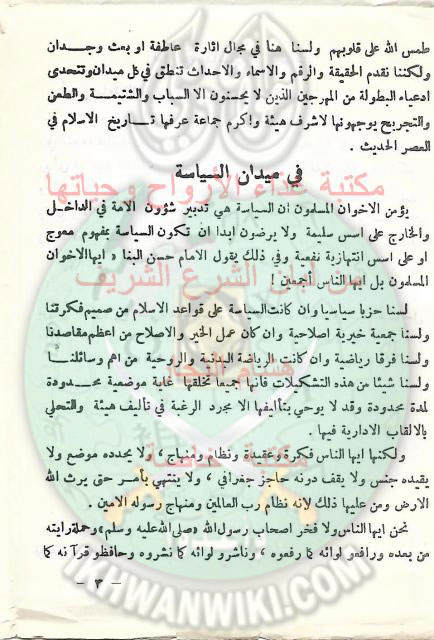 طمس الله على قلوبهم ولسنا هنا في مجال اثارة عاطفة او بعث وجدان
ولكننا نقدم الحقيقة والرقم والاسماء والاحداث تنطق في كل ميدان وتتحدى
ادعياء البطولة من المهرجين الذين لا يحسنون الا السباب والشتيمة والطعن
والتجريح يوجهونها لاشرف هيئة واكرم جماعة عرفها تاريخ الاسلام في
العصر الحديث .
في ميدان السياسة
مكتبة غذاء الارواح وحياتها
يؤمن الاخوان المسلمون ان السياسة هي تدبير شؤون الامة في الداخل
والخارج على اسس سليمة ولا يرضون ابدا ان تكون السياسة بمفهوم معوج
او على اسس انتهازية نفعية وفي ذلك يقول الامام حسن البنا « ايها الاخوان
المسلمون بل ايها الناس أجمعين !
من الشرع الشريف
لسنا حزبا سياسيا وان كانت السياسة على قواعد الاسلام من صميم فكرتنا
ولسنا جمعية خيرية اصلاحية وان كان عمل الخير والاصلاح من اعظم مقاصدنا
ولسنا فرقا رياضية وان كانت الرياضة البدنية والروحية من اهم وسائلنا
هشام النجار
ولسنا شيئا من هذه التشكيلات فانها جميعا تخلقها غاية موضعية محدودة
لمدة محدودة وقد لا يوحي بتأليفها الا مجرد الرغبة في تأليف هيئة والتحلي
بالالقاب الادارية فيها .
مكتبة خاصة
ولكننا ايها الناس فكرة وعقيدة ونظام ومنهاج ، ولا يحدده موضع ولا
يقيده جنس ولا يقف دونه حاجز جغرافي ، ولا ينتهي بأمر حتى يرث الله
الارض ومن عليها ذلك لانه نظام رب العالمين ومنهاج رسوله الامين .
نحن ايها الناس ولا فخر اصحاب رسول الله « صلى الله عليه وسلم » وحملة رايته
من بعده ورافعو لوائه كما رفعوه ، وناشرو لوائه كما نشروه وحافظو قرآنه كما
- ٣ -
IKHWANWIKI.COM